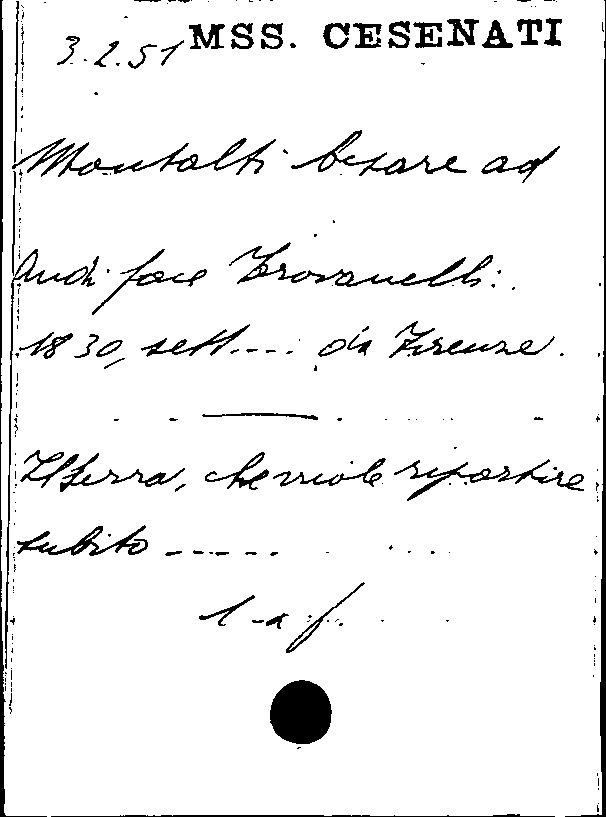 3.2.51 MSS. CESENATI
Montalti Cesare ad
Audiface Trovanelli:
1830, sett.... da Firenze.
Il Serra, che vuole ripartire
subito -----
1 a f.